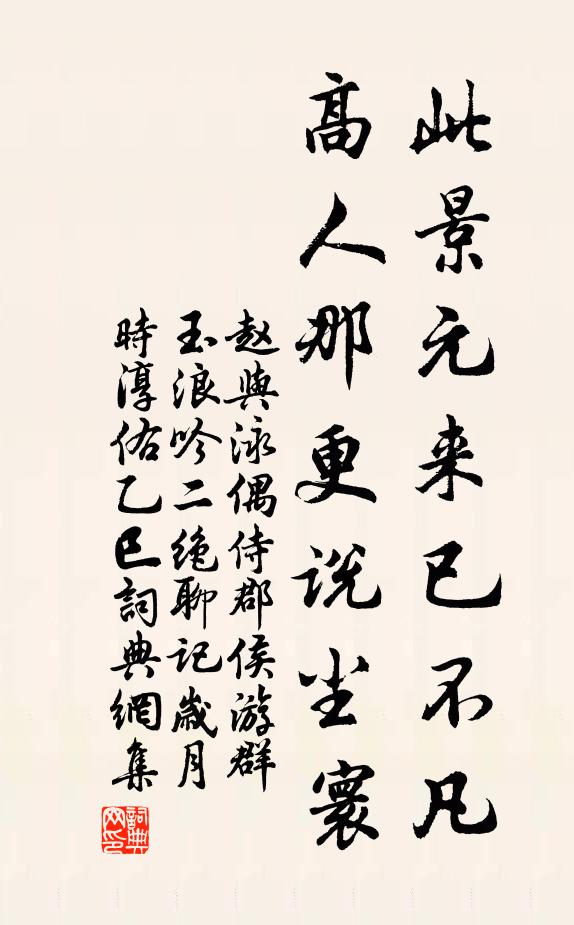 此景元来已不凡
高人那更说尘寰
赵与泳偶侍郡侯游群
玉浪吟二绝聊记岁月
時淳佑乙巳詞典網集
詞典
网印